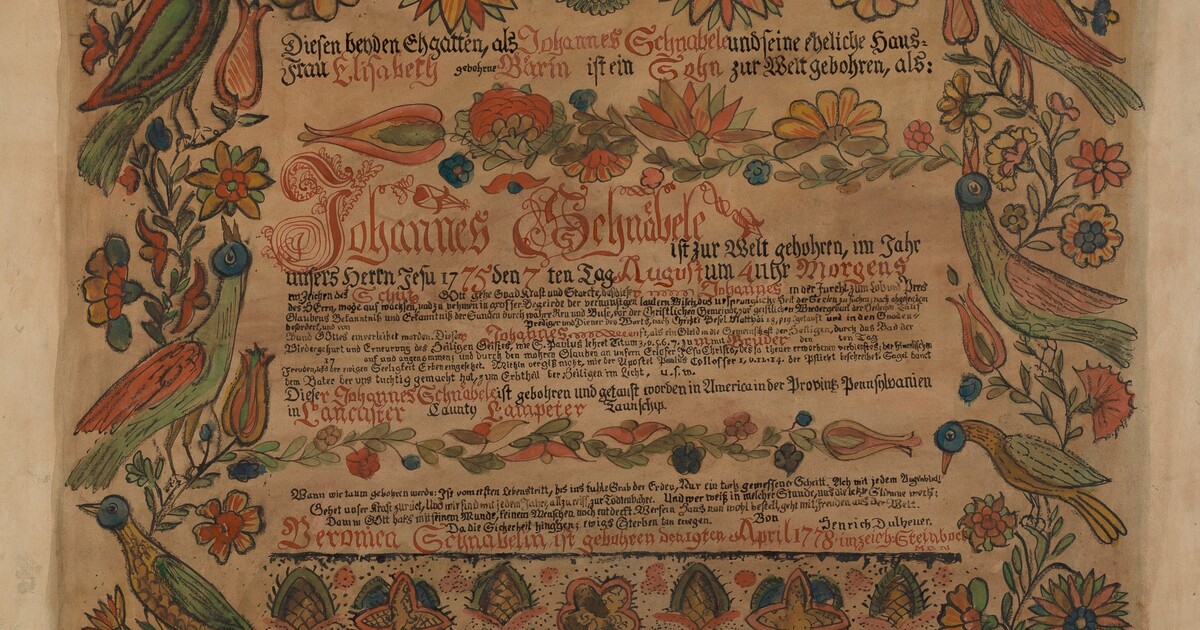 Diesen beyden Ehgatten, als Johannes Schnabele und seine eheliche Haus-
Frau Elisabeth gebohrne Bärin ist ein Sohn zur Welt gebohren, als:
Johannes Schnäbele
ist zur Welt gebohren, im Jahr
unsers Herrn Jesu 1775 den 7 ten Tag August um 4 uhr Morgens
im Zeichen des Schütz GOtt gebe Gnad Krafft und Starcke, daß dieser Johannes in der Furcht, zum Lob und Preis
des HErrn, möge auf wachsen, und zu nehmen in grosser Begierde der
Glaubens Bekantnüß und Erkantnüß der Sünden durch wahre Reu und Buse, vor der Christlichen Gemeinde, zur geistlichen Wiedergeburt
befördert, und von Prediger und Diener des Worts, nach Christi Befel Matthäi 28, getauft und in den Gnaden
Bund GOttes einverleibet worden. Dieser Johannes als ein Glied in die Gemeinschaft der Heiligen, durch das Bad der
Wiedergeburt und Erneurung des Heiligen Geistes, wie S. Paulus lehret Titum 3, v. 5. 6. 7. Bruder den ten Tag
17 auf und angenommen; und durch den wahren Glauben an unsern Erlöser JEsu Christo, des so theuer erworbenen
Freuden, und der ewigen Seeligkeit Erben eingesetzet. der Apostel Paulus Collosser 1, v. 12. 14. der Pflicht
dem Vater der uns tüchtig gemacht hat, zum Erbtheil der Heiligen im Licht, u. s. w.
Dieser Johannes Schnabele ist gebohren und getauft worden in America in der Provintz Pennsylvanien
in Lancaster County Lampeter Taunschip.
Wann wir kaum gebohren werden: Ist vom ersten Lebenstritt, bis ins kühle Grab der Erden, Nur ein kurtz gemessener Schritt. Ach mit jedem Augenblick!
Gehet unser Kraft zurück, Und wir sind mit jedem Jahre, allzu reiff zur Todtenbahre. Und wer weiß in welcher Stunde, uns die letzte Stimme weckt:
Dann GOtt hats mit seinem Munde, keinem Menschen noch entdeckt. Wer sein Haus nun wohl bestellt, geht mit Freuden aus der Welt.
Da die Sicherheit hingegen; ewigs Sterben kan erregen. Von Henrich Dulheuer.
Veronica Schnabelin ist gebohren den 19ten April 1778 im zeich: Steinbock